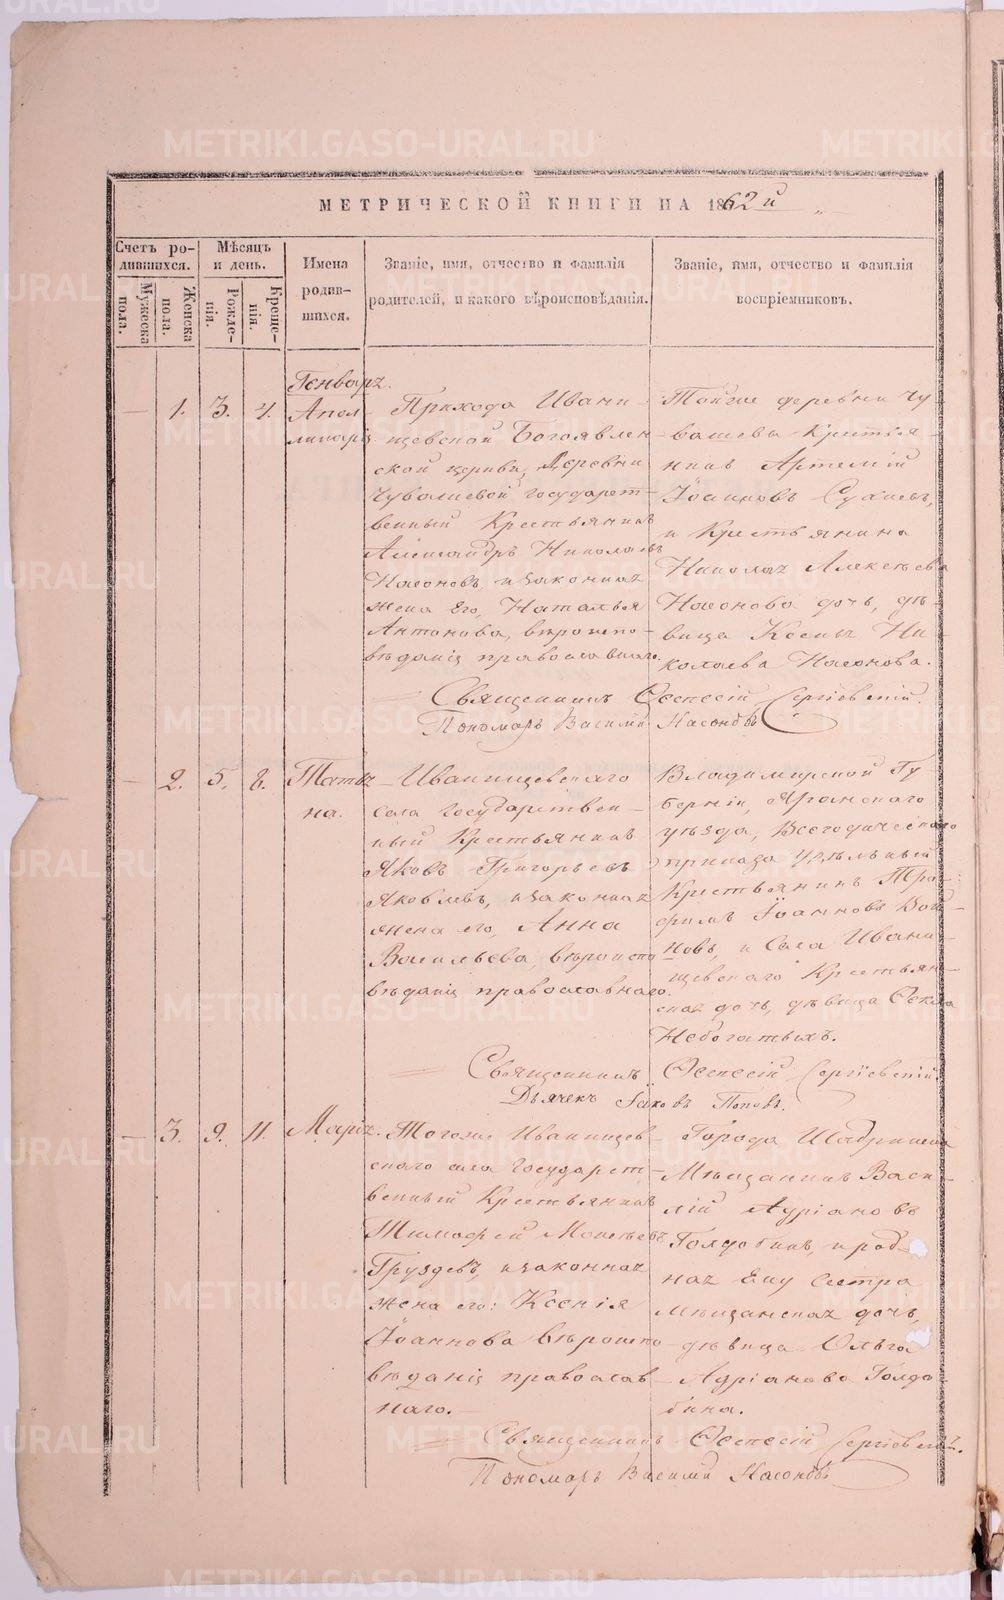 МЕТРИЧЕСКОЙ КНИГИ НА 1862 й
Счетъ ро-
дившихся.
Мужеска
пола.
Женска
пола.
Мѣсяцъ
и день.
Рожде-
нія.
Креще-
нія.
Имена
родив-
шихся.
Званіе, имя, отчество и фамилія
родителей, и какого вѣроисповѣданія.
Званіе, имя, отчество и фамилія
воспріемниковъ.
Генварь.
— 1. 3. 4.
Апол-
линарія
Прихода Ивани-
щевской Богоявлен
ской церкви, Деревни
Чувашевой государст-
венный Крестьянинъ
Александръ Николаевъ
Насоновъ, и законная
жена Его, Наталья
Антонова, вѣроиспо-
вѣданія православнаго.
Тойже деревни Чу
вашевы Крестья-
нинъ Артемій
Іоанновъ
и Крестьянина
Николая Алексѣева
Насонова дочь, дѣ-
вица Ксенья Ни-
колаева Насонова.
Священникъ Ѳеспесій Сергіевскій.
Пономарь Василий Насоновъ
— 2. 5. 8.
Татья
на.
Иванищевскаго
села Государствен-
ный Крестьянинъ
Яковъ Григорьевъ
Яковлевъ, и законная
жена его, Анна
Васильева, вѣроиспо
вѣданія православнаго.
Владимирской Гу-
берніи,
уѣзда,
приказа удѣльный
Крестьянинъ Тро-
фимъ Іоанновъ
новъ, и Села Ивани-
щевскаго Крестьян-
ская дочь, дѣвица Ѳекла
Небогатыхъ.
Священникъ Ѳеспесій Сергіевскій.
Дьячекъ Іаковъ Поповъ.
— 3. 9. 11.
Марія.
Тогоже Иванищев-
скаго села Государст-
венный Крестьянинъ
Тимофей Моисѣевъ
Груздевъ, и законная
жена его: Ксенія
Іоаннова вѣроиспо
вѣданія православ-
наго.
Города Шадринска
Мѣщанинъ Васи-
лій Адріановъ
Голдобинъ, и род-
ная Ему сестра
мѣщанская дочь,
дѣвица Ольга
Адріанова Голдо-
бина.
Священникъ Ѳеспесій Сергіевскій.
Пономарь Василий Насоновъ
METRIKI.GASO-URAL.RU